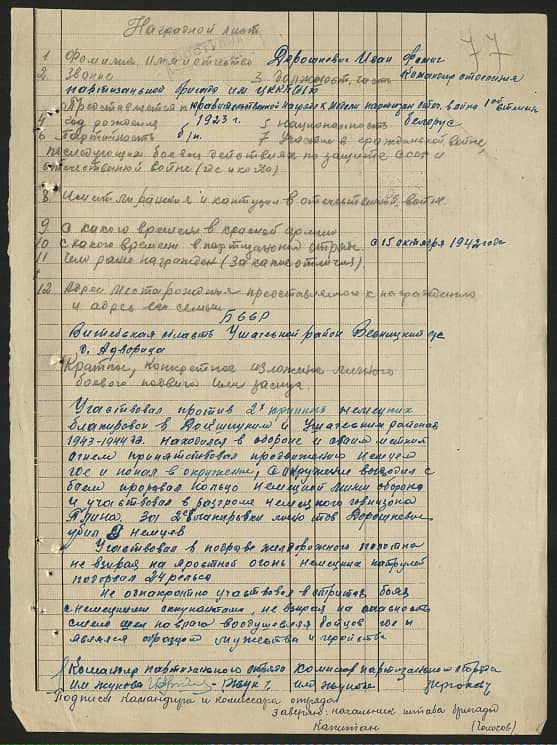 Наградной лист
77
1 Фамилия, имя и отчество Дорошкевич Иван Фомич
2. Звание 3. должность, часть Командир отделения
партизанской бригады им ЦККП(б)Б
Представляется к правительственной награде к медали партизан отеч. война 1ой степени
4 Год рождения 1923 г. 5 национальность белорус
6 Партийность б/п. 7 Участие в гражданской войне,
последующих боевых действиях по защите СССР и
отечественной войне (где и когда)
8 Имеет ли ранения и контузии в отечественной войне
9 С какого времени в красной армии
10 С какого времени в партизанском отряде с 15 октября 1942 года
11 Чем ранее награжден (за какие отличия)
12 Адрес место рождения представляемого к награждению
и адрес его семьи
БССР
Витебская область Ушатский район
д. Адворица
Краткое, конкретное изложение личного
боевого подвига или заслуг.
Участвовал против 2х немецких
блакировок в Докшицким и Ушатским районах
1943-1944 гг. находился в обороне и своим метким
огнем припятствовал продвижению немцем
где и попал в окружение, с окружение выходил с
боем прорывал кольцо немецкой линии обороны
и участвовал в разгроме немецкого гарнизона
За 2е блакировки лично тов Дорошкевич
убил 8 немцев
Участвовал в подрыве железнодорожного полотна
не взирая на яростной огонь немецких патрулей
подорвал 24 рельса
Не однакратно участвовал в открытых боях
с немецкими оккупантами, не взирая на опасность
смело шел на врага воодушевляя бойцов
являлся образцом мужества и геройства
Командир партизанского отряда Комиссар партизанского отряда
им Жукова им Жукова
Подписи командира и комиссара отряда
Заверяю: начальник штаба бригады
Капитан (Голосов)